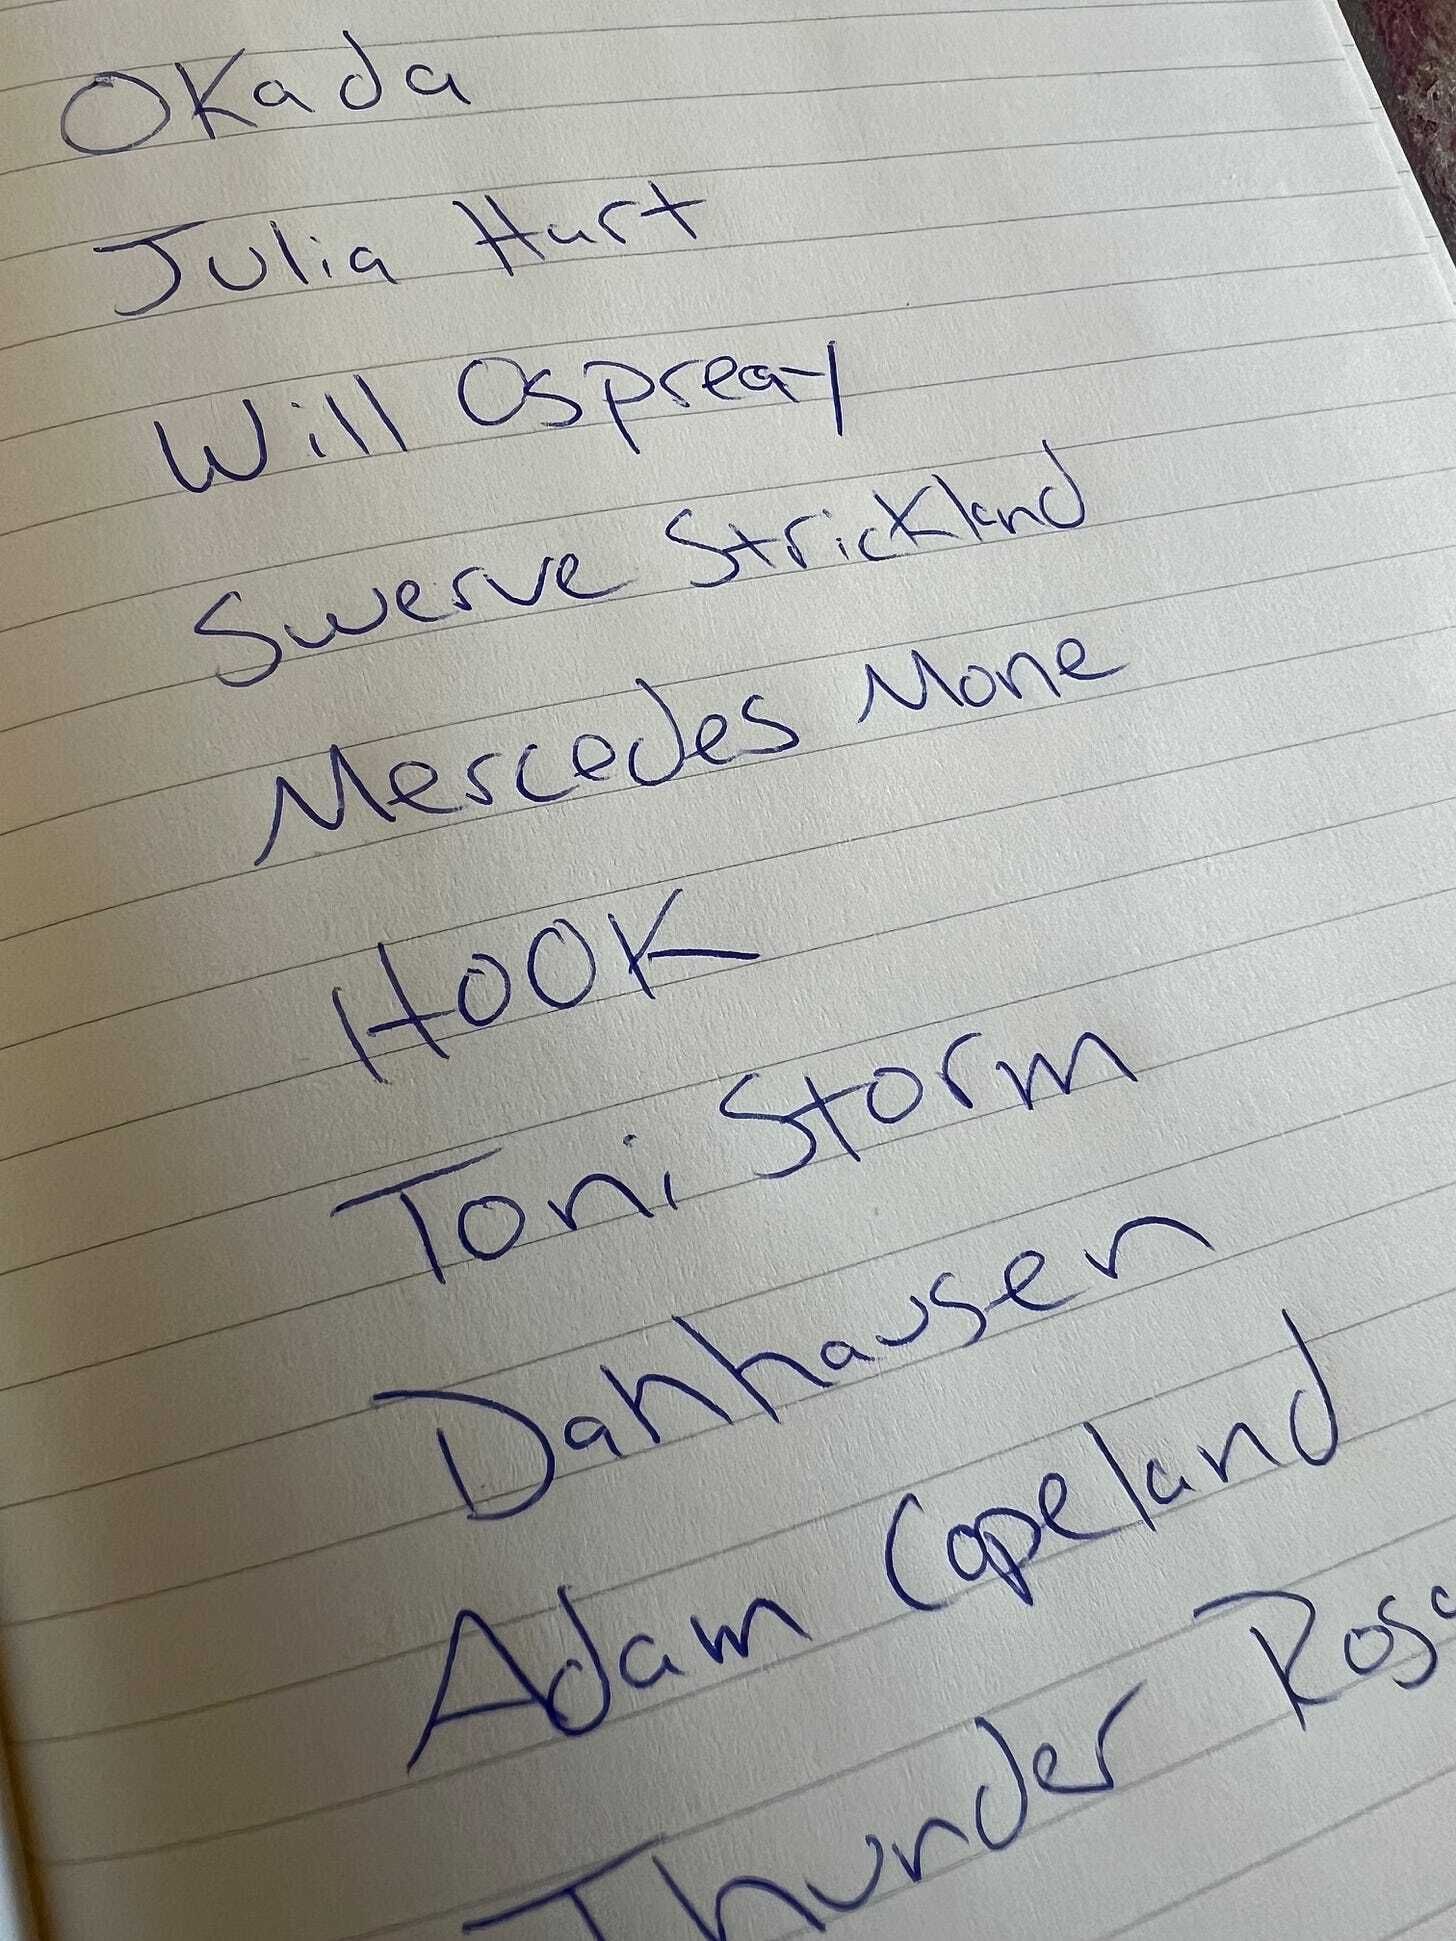 Okada
Julia Hart
Will Ospreay
Swerve Strickland
Mercedes Mone
HOOK
Toni Storm
Danhausen
Adam Copeland
Thunder Rosa